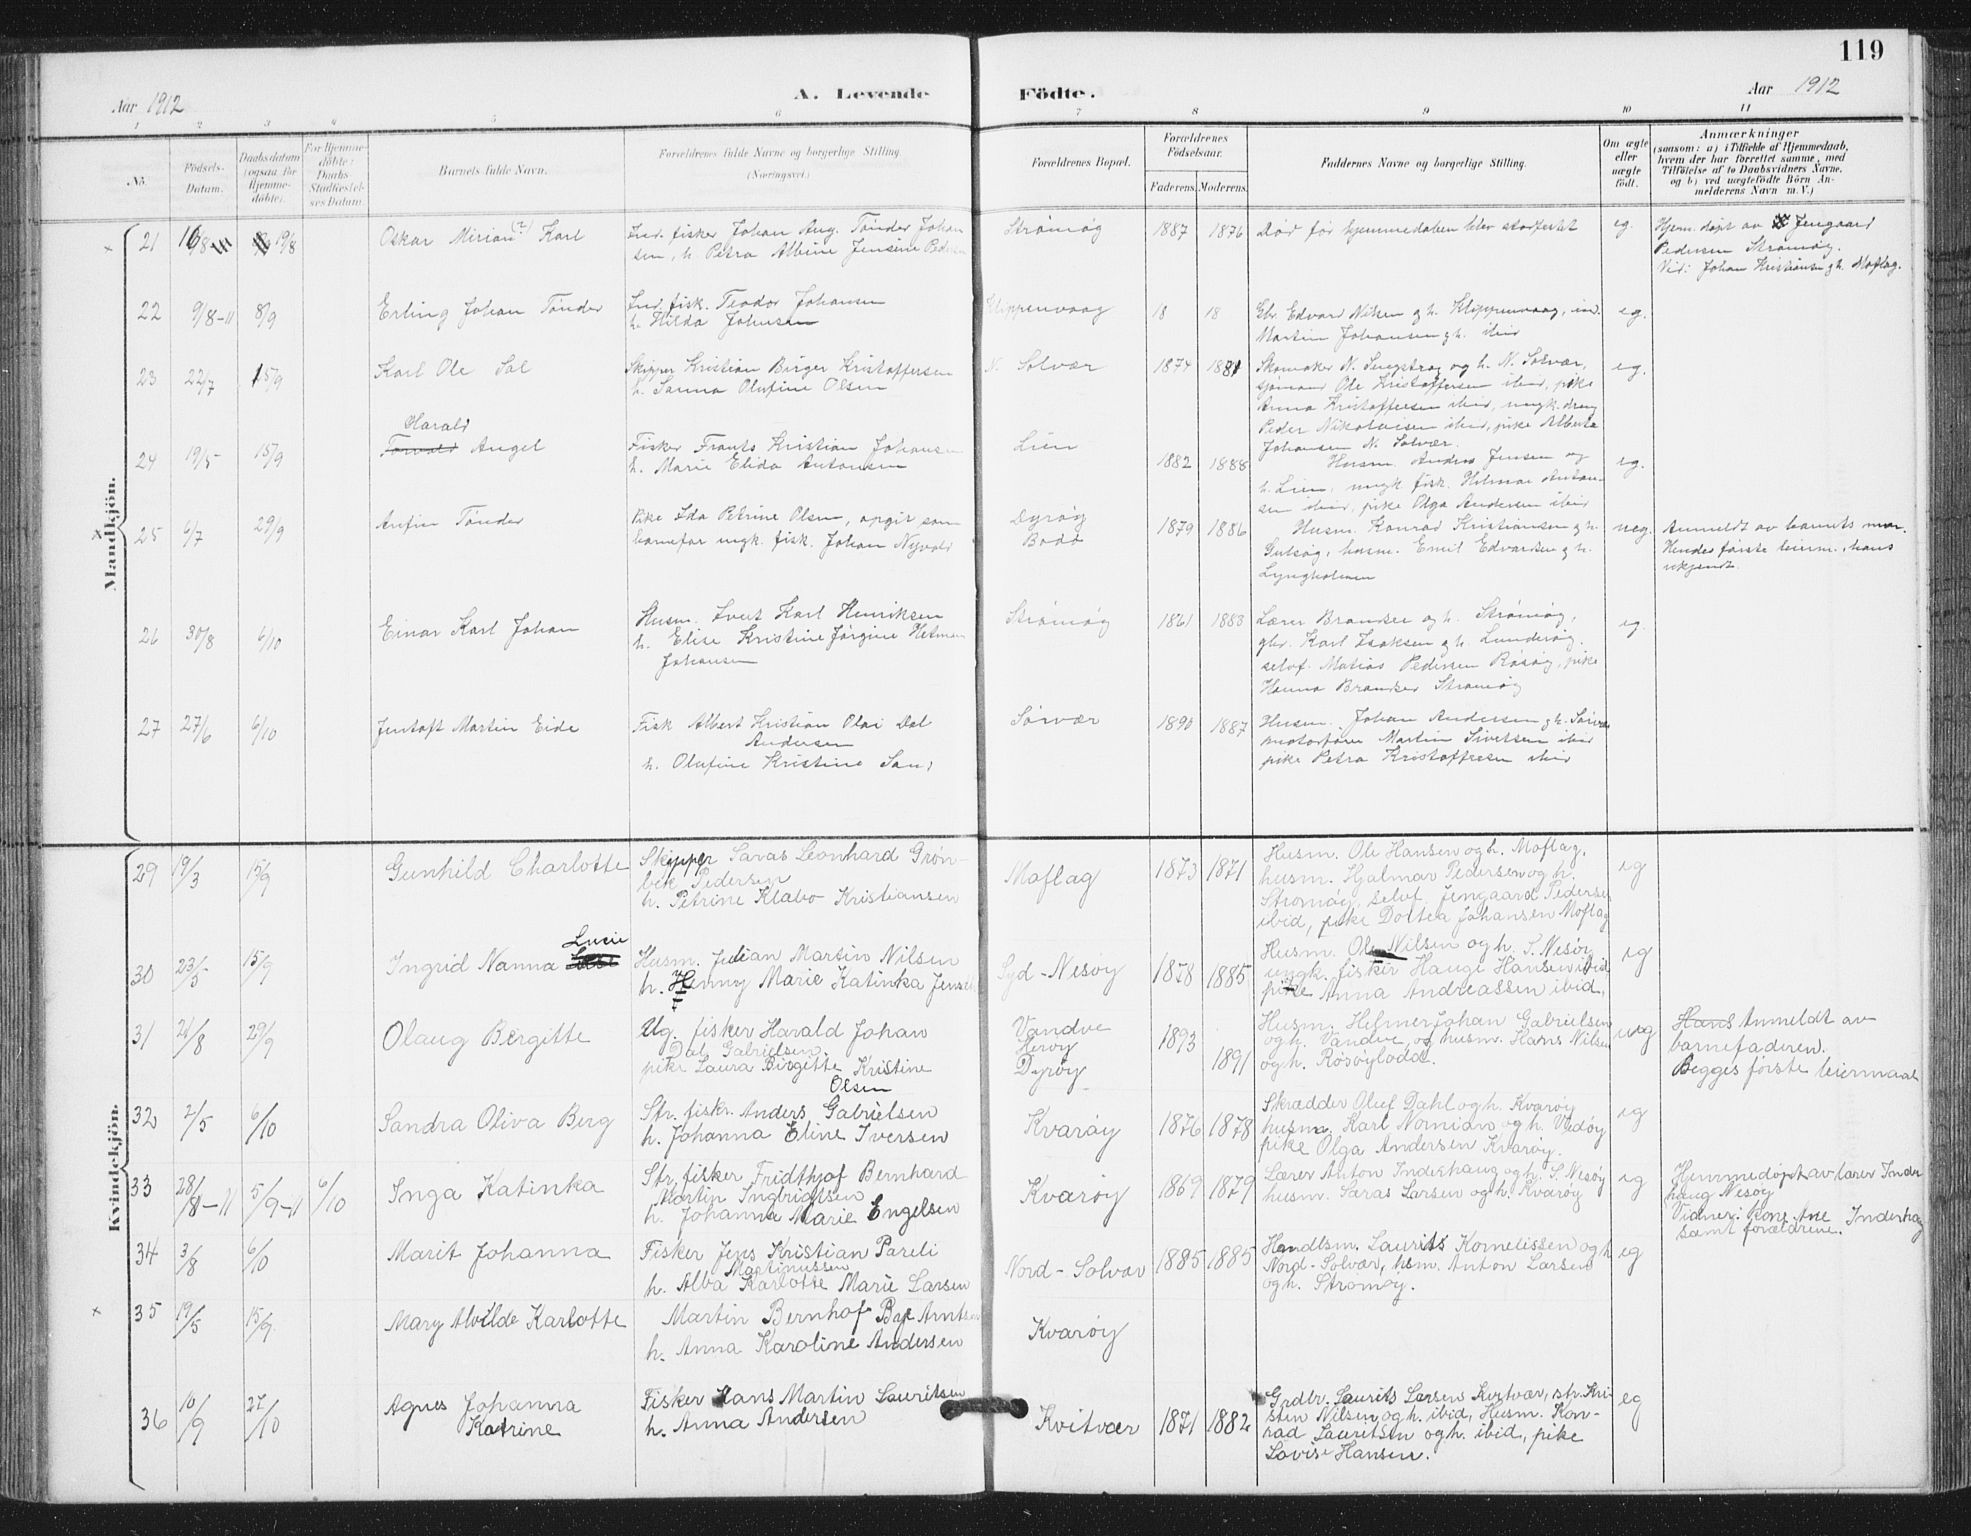 119
Aar 1912
A. Levende Födte.
Aar 1912
1 2 3 4 5 6 7 8 9 10 11
No.
Födsels-Datum.
Daabsdatum (ogsaa för Hjemme-döbte).
For Hjemme-döbte: Daabs-Stadfæstel-ses Datum.
Barnets fulde Navn.
Forældrenes fulde Navne og borgerlige Stilling.
(Næringsvei.)
Forældrenes Bopæl.
Forældrenes Födselsaar.
Faderens. Moderens.
Faddernes Navne og borgerlige Stilling.
Om ægte eller uægte født.
Anmærkninger
(saasom: a) i Tilfælde af Hjemmedaab, hvem der har forrettet samme, med Tilføielse af to Daabsvidners Navne, og b) ved uægtefödte Börn Anmelderens Navn m. V.)
Mandkjön.
21 16/8 19/8 Oskar Mirian (?) Karl
Ind. fisker Johan Aug. Tønder Johan
sen, h. Petra Albine Jensine Peders
Strømøy 1887 1876
Død før hjemmedåben blev stadfestet
eg.
Hjem. døpt av Jengaard
Pedersen Strømøy.
Vid: Johan Kristiansen g h. Moflag.
22 9/8-11 8/9 Erling Johan Tønder
Ind. fisk. Teodor Johansen
h. Hilda Johnsen
Klippenvaag 18 18
Gbr. Edvard Nilsen g h. Klippenvaag, ind.
Martin Johansen g h. ibid
eg.
23 22/7 15/9 Karl Ole Sol
Skipper Kristian Birger Kristoffersen
h. Sanna Olufine Olsen
N. Solvær 1874 1881
Skomaker N. Lengstrag og h. N. Solvær,
sjømand Ole Kristoffersen ibid, pike
Anna Kristoffersen ibid, ungk. dreng
Peder Nikolaisen ibid, pike Alberta
Johansen N. Solvær.
eg.
24 19/5 15/9 Harald
Torvald Angel
Fisker Frants Kristian Johansen
h. Marie Elida Antonsen
Lien 1882 1888
Husm. Anders Jensen og
h. Lien, ungk. fisk. Hilmar Anton-
sen ibid, pike Olga Andersen ibid
eg.
25 6/7 29/9 Arfin Tønder
Pike Ida Petrine Olsen, opgir som
barnefar ungk. fisk. Johan Nyvold
Dyrøy
Bodø
1879 1886
Husm. Konrad Kristiansen g h.
Gulsøy, husm. Emil Edvardsen g h.
Lyngholmen
ueg.
Anmeldt av barnets mor.
Hendes første leierm., hans
ukjendt.
26 30/8 6/10 Einar Karl Johan
Husm. Sivert Karl Henriksen
h. Elise Kristine Jørgine Hetman
Johansen
Strømøy 1861 1883
Lærer Brandser og h. Strømøy,
gbr. Karl Isaksen g h. Lunderøy.
selvf. Matias Pedersen Råsøy, pike
Hanna Brandser Strømøy
eg.
27 27/6 6/10 Jentoft Martin Eide
Fisk Albert Kristian Olai Dal
Andersen
h. Olufine Kristine San.
Sørvær 1890 1887
Husm. Johan Andersen g h. Sørvær
motorfører Martin Sivertsen ibid
pike Petra Kristoffersen ibid
Kvindekjön.
29 19/3 15/9 Gunhild Charlotte
Skipper Saras Leonhard Grøn-
bek Pedersen
h. Petrine Klabo Kristiansen
Moflag 1873 1871
Husm. Ole Hansen og h. Moflag,
husm. Hjalmar Pedersen og h.
Strømøy, selvf. Jengaard Pedersen
ibid, pike Dortea Johansen Moflag
eg
30 23/5 15/9 Ingrid Nanna Lucie
Husm. Julian Martin Nilsen
h. Henny Marie Katinka Jensen
Syd-Nesøy 1878 1885
Husm. Ole Nilsen og h. S. Nesøy
ungk. fisker Hauge Hansen ibid
pike Anna Andreassen ibid,
eg
31 21/8 29/9 Olaug Birgitte
Ug. fisker Harald Johan
Dal Gabrielsen
pike Laura Birgitte Kristine
Olsen
Vandve
Herøy
Dyrøy
1893
1891
Husm. Helmer Johan Gabrielsen
og h. Vandve, og husm. Hans Nilsen
og h. Røsøylodd.
ueg
Hans Anmeldt av
barnefaderen.
Begges første leiermaal
32 2/5 6/10 Sandra Oliva Berg
Str. fiskr. Anders Gabrielsen
h. Johanna Eline Iversen
Kvarøy 1876 1878
Skrædder Oluf Dahl og h. Kvarøy
husm. Karl Nomian og h. Vadøy
pike Olga Andersen Kvarøy.
eg
33 28/8-11 5/9-11 6/10 Inga Katinka
Str. fisker Fridthjof Bernhard
Martin Ingbrigtsen
h. Johanna Marie Engelsen
Kvarøy 1869 1879
Lærer Anton Inderhaug og h. S. Nesøy
husm. Saras Larsen og h. Kvarøy
eg
Hjemmedøpt av lærer Inder
haug Nesøy
Vidner: Kone Ane Inderhaug
samt forældrene.
34 3/8 6/10 Marit Johanna
Fisker Jens Kristian Pareli
Martinussen
h. Alba Karlotte Marie Larsen
Nord-Solvær 1885 1885
Handlsm. Laurits Kornelissen og h
Nord-Solvær, hsm. Anton Larsen
og h. Strømøy.
eg
35 19/5 15/9 Mary Alvilde Karlotte
Martin Bernhof Bye Arntsen
h. Anna Karoline Andersen
Kvarøy
36 10/9 27/10 Agnes Johanna
Katrine
Fisker Hans Martin Lauritsen
h. Anna Andersen
Kvitvær 1871 1882
Grdbr. Laurits Larsen Kvitvær, str. Kri-
sten Nilsen og h. ibid, Husm. Kon-
rad Lauritsen og h. ibid, pike
Lovise Hansen.
eg